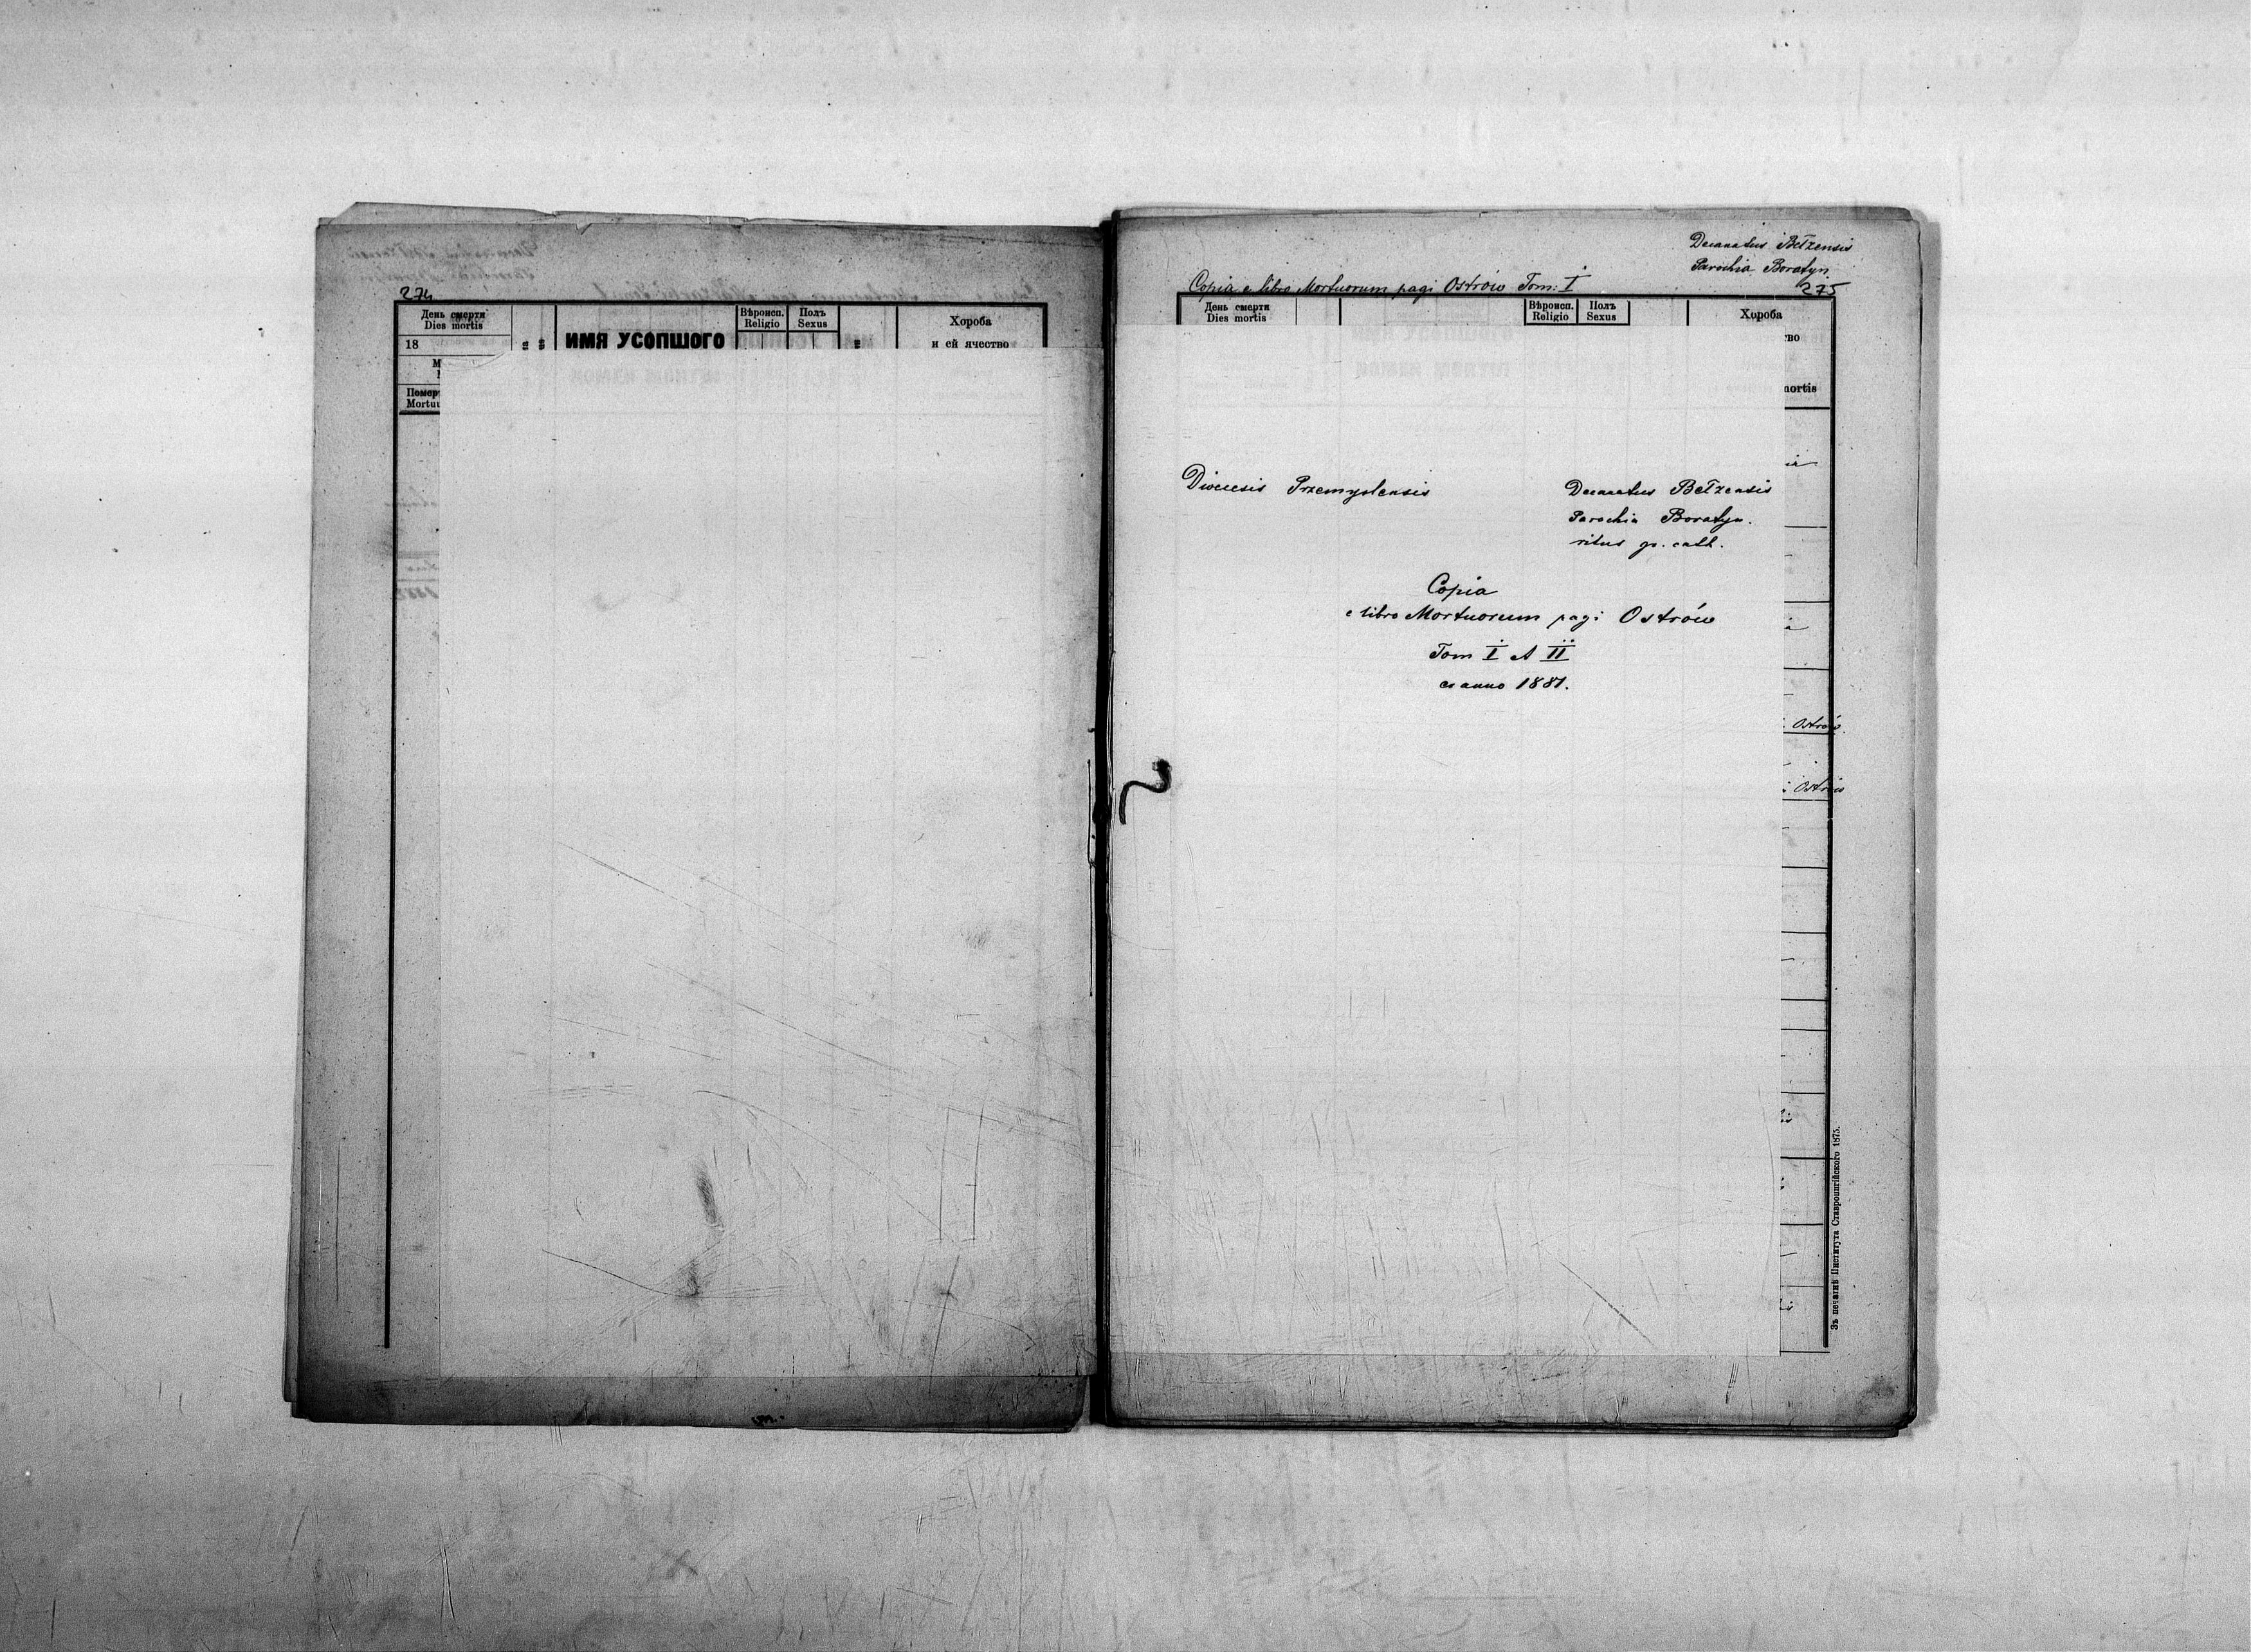 274
День смерти
Dies mortis
18
ИМЯ УСОПШОГО
Вѣроисп.
Religio
Полъ
Sexus
Хороба
и ей ячество
Decanatus Bełzensis
Parochia Boratyn
Copia e libro Mortuorum pagi Ostrów Tom. I
275
День смерти
Dies mortis
Вѣроисп.
Religio
Полъ
Sexus
Хороба
Dioecesis Przemyslensis
Decanatus Bełzensis
Parochia Boratyn.
ritus gr. cath.
Copia
e libro Mortuorum pagi Ostrów
Tom I et II
anno 1881.
Ostrów.
Ostrów
Зъ печатнѣ Института Ставропигійского 1875.